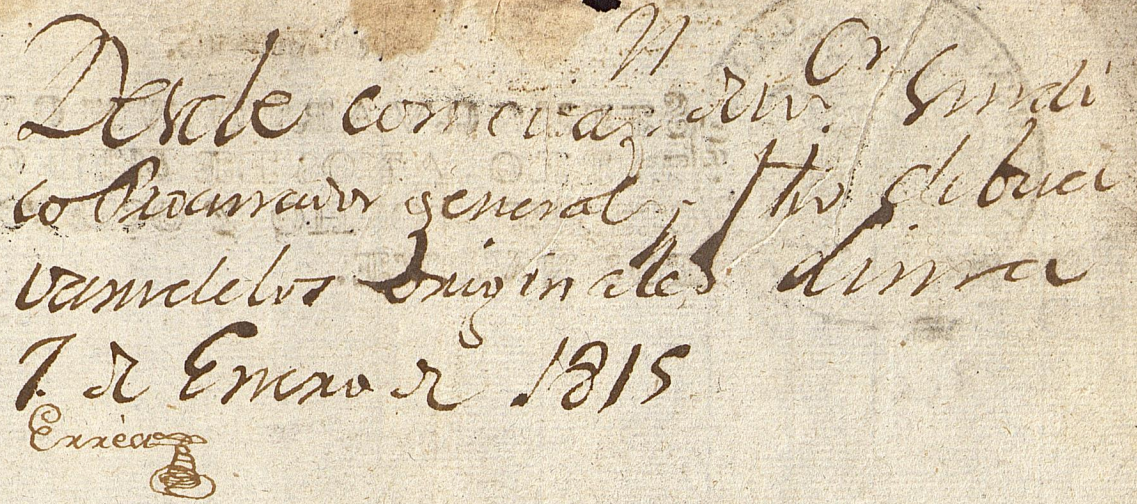 Desele comvisaz.n
co Procurador general, y fho debuel
vansele los originales Lima
7. de Enero de 1815
Errea